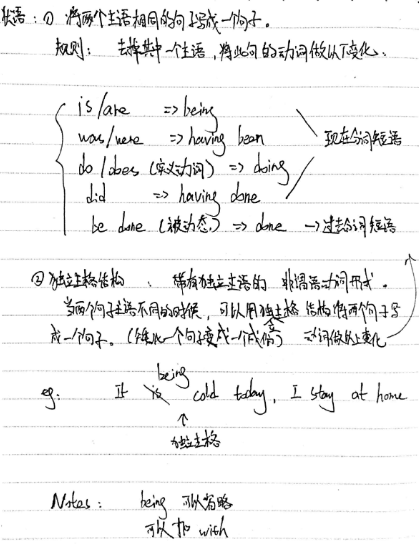 状语：① 将两个主语相同的句子写成一个句子。
规则：去掉其中一个主语，将此句的动词做以下变化：
is/are => being
was/were => having been
do/does (实义动词) => doing
did => having done
现在分词短语
be done (被动态) => done → 过去分词短语
② 独立主格结构：带有独立主语的非谓语动词形式。
当两个句子主语不同的时候，可以用独立主格结构将两个句子写
成一个句子。( 一个句子变成一个成分) 动词做以上变化
being
eg: It is cold today, I stay at home
↑
独立主格
Notes: being 可以省略
可以加 with